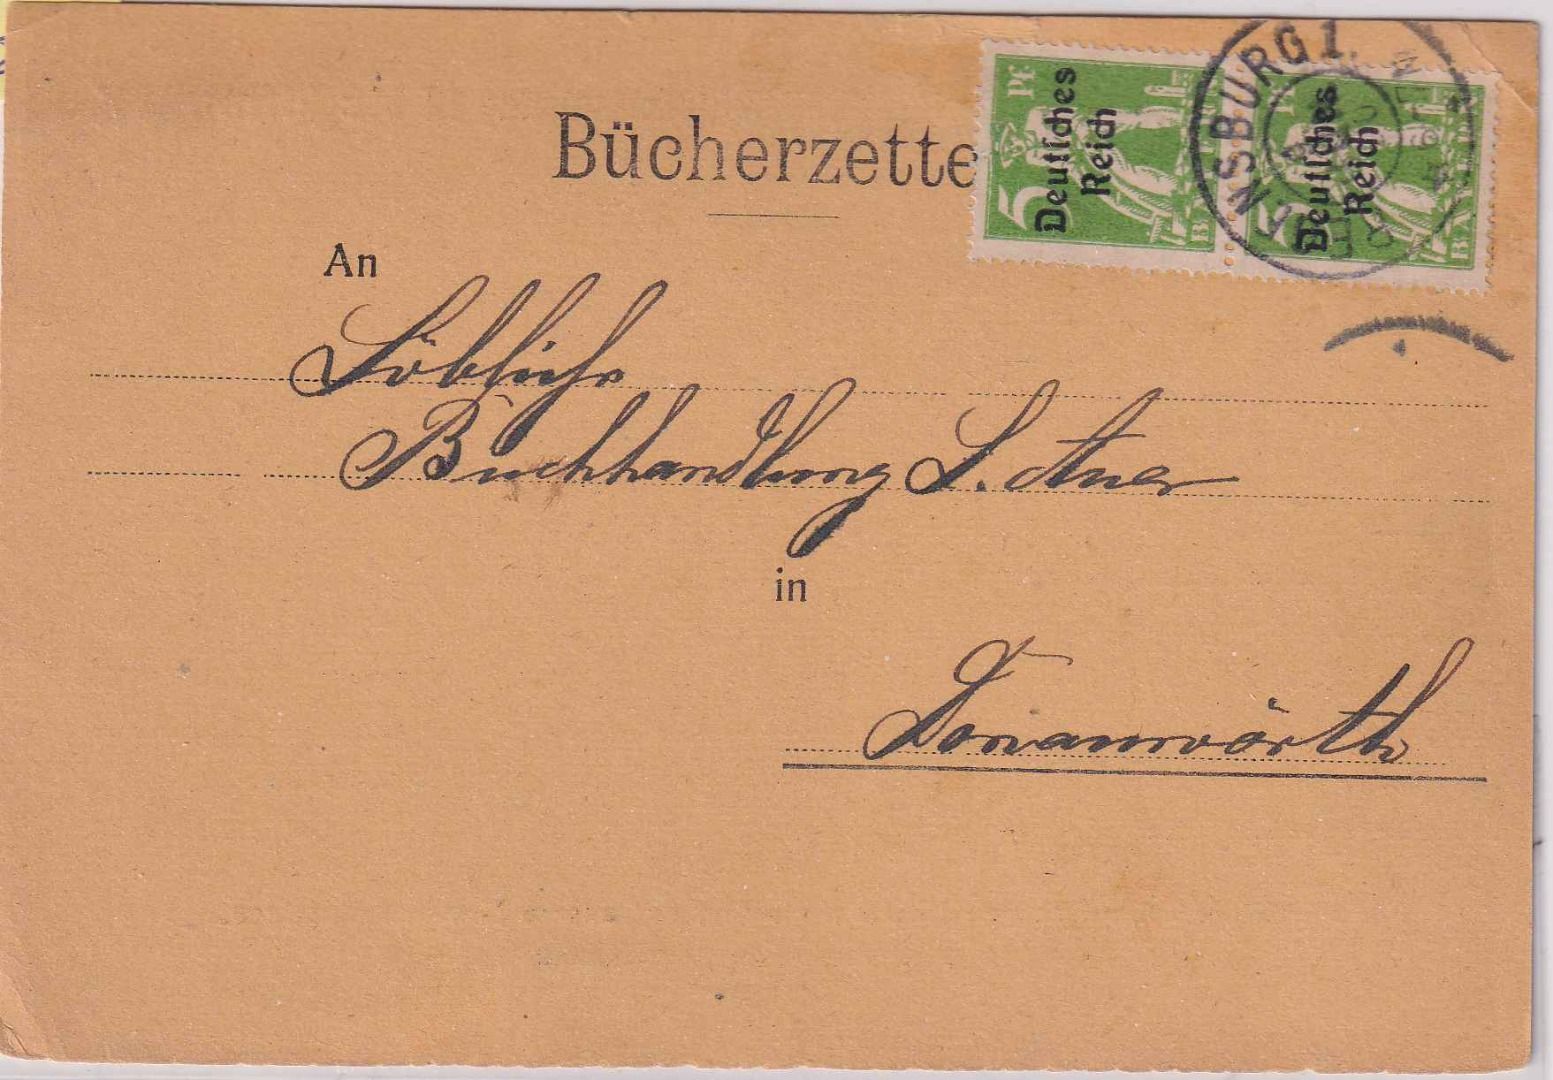 Bücherzette
5 PF. Deutsches Reich
Deutsches Reich
NSBURG 1.
An
Löbliche
Buchhandlung L. Auer
in
Donauwörth